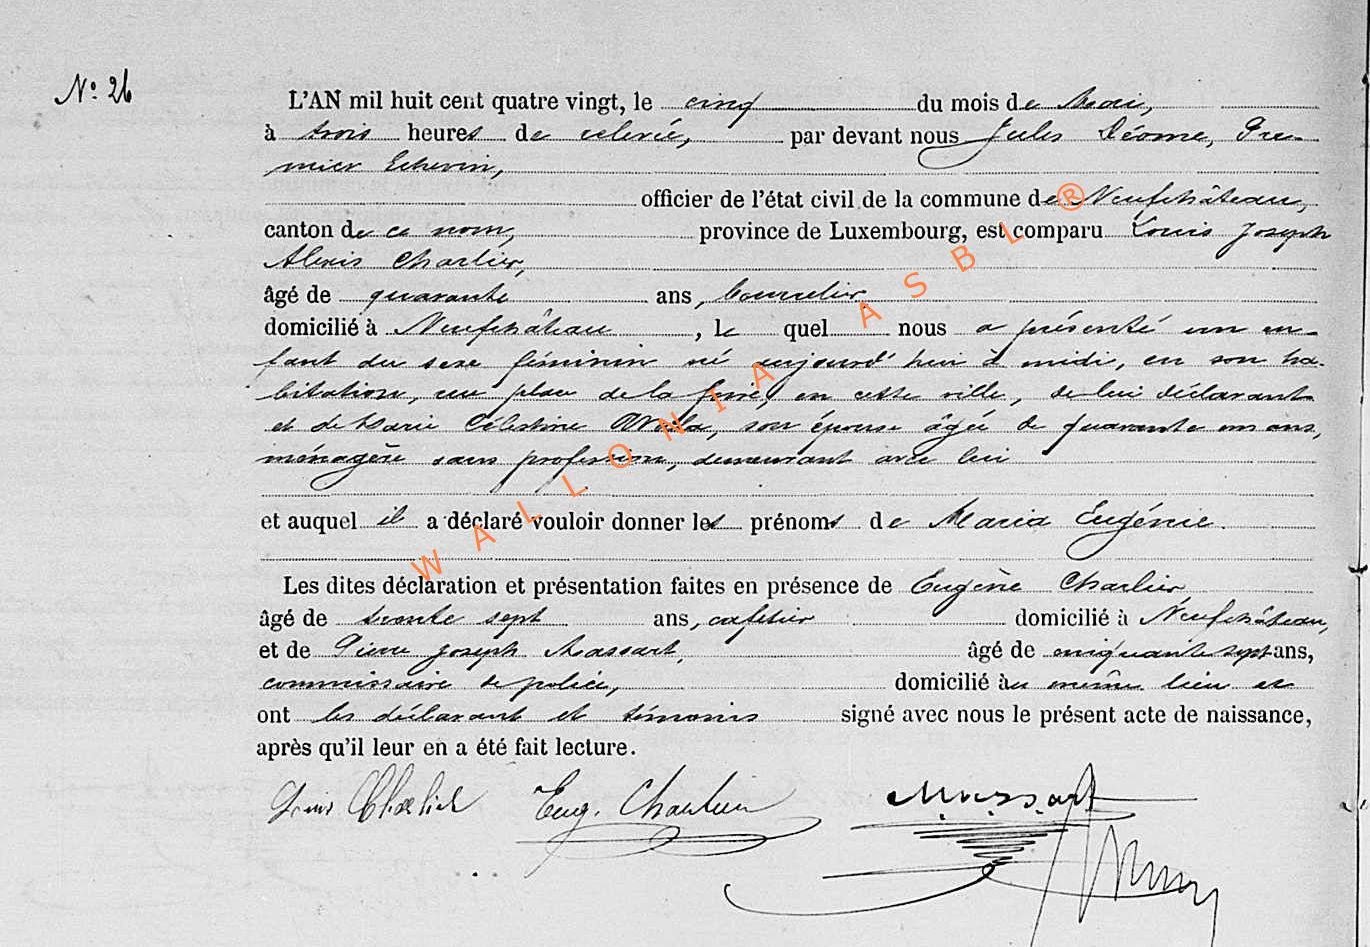 N° 26
L'AN mil huit cent quatre vingt, le cinq du mois de Mai,
à trois heures de relevée, par devant nous Jules Déome, Pre-
mier Echevin,
officier de l'état civil de la commune de Neufchâteau,
canton de ce nom, province de Luxembourg, est comparu Louis Joseph
Alexis Charlier,
âgé de quarante ans,
domicilié à Neufchâteau, le quel nous a présenté un en-
fant du sexe féminin né aujourd'hui à midi, en son ha-
bitation, place de la foire, en cette ville, de lui déclarant
et de Marie Célestine son épouse âgée de quarante un ans,
ménagère sans profession, demeurant avec lui
et auquel il a déclaré vouloir donner les prénoms de Maria Eugénie.
Les dites déclaration et présentation faites en présence de Eugène Charlier
âgé de trente sept ans, cafetier domicilié à Neufchâteau,
et de Pierre Joseph Massart, âgé de cinquante sept ans,
commissaire de police, domicilié au même lieu et
ont les déclarant et témoins signé avec nous le présent acte de naissance,
après qu'il leur en a été fait lecture.
Louis Charlier Eug. Charlier Massart
WALLONIA ASBL ®